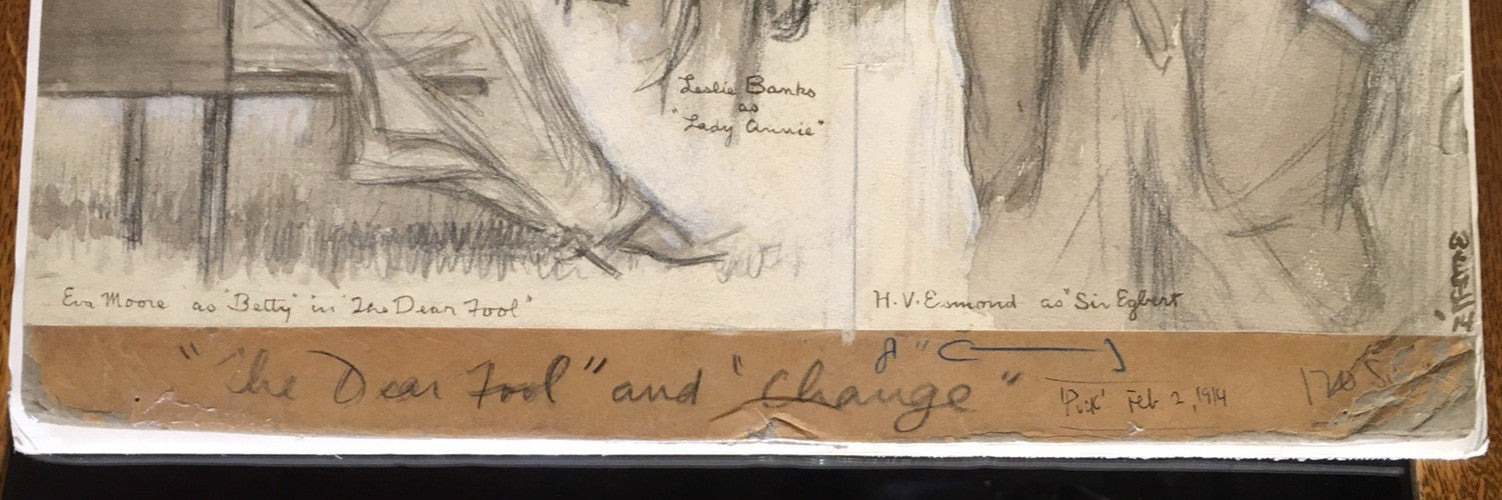 Leslie Banks
as
"Lady Annie"
Eva Moore as "Betty" in "The Dear Fool"
H.V. Esmond as "Sir Egbert"
"The Dear Fool" and "Change"
'Puck' Feb 2, 1914